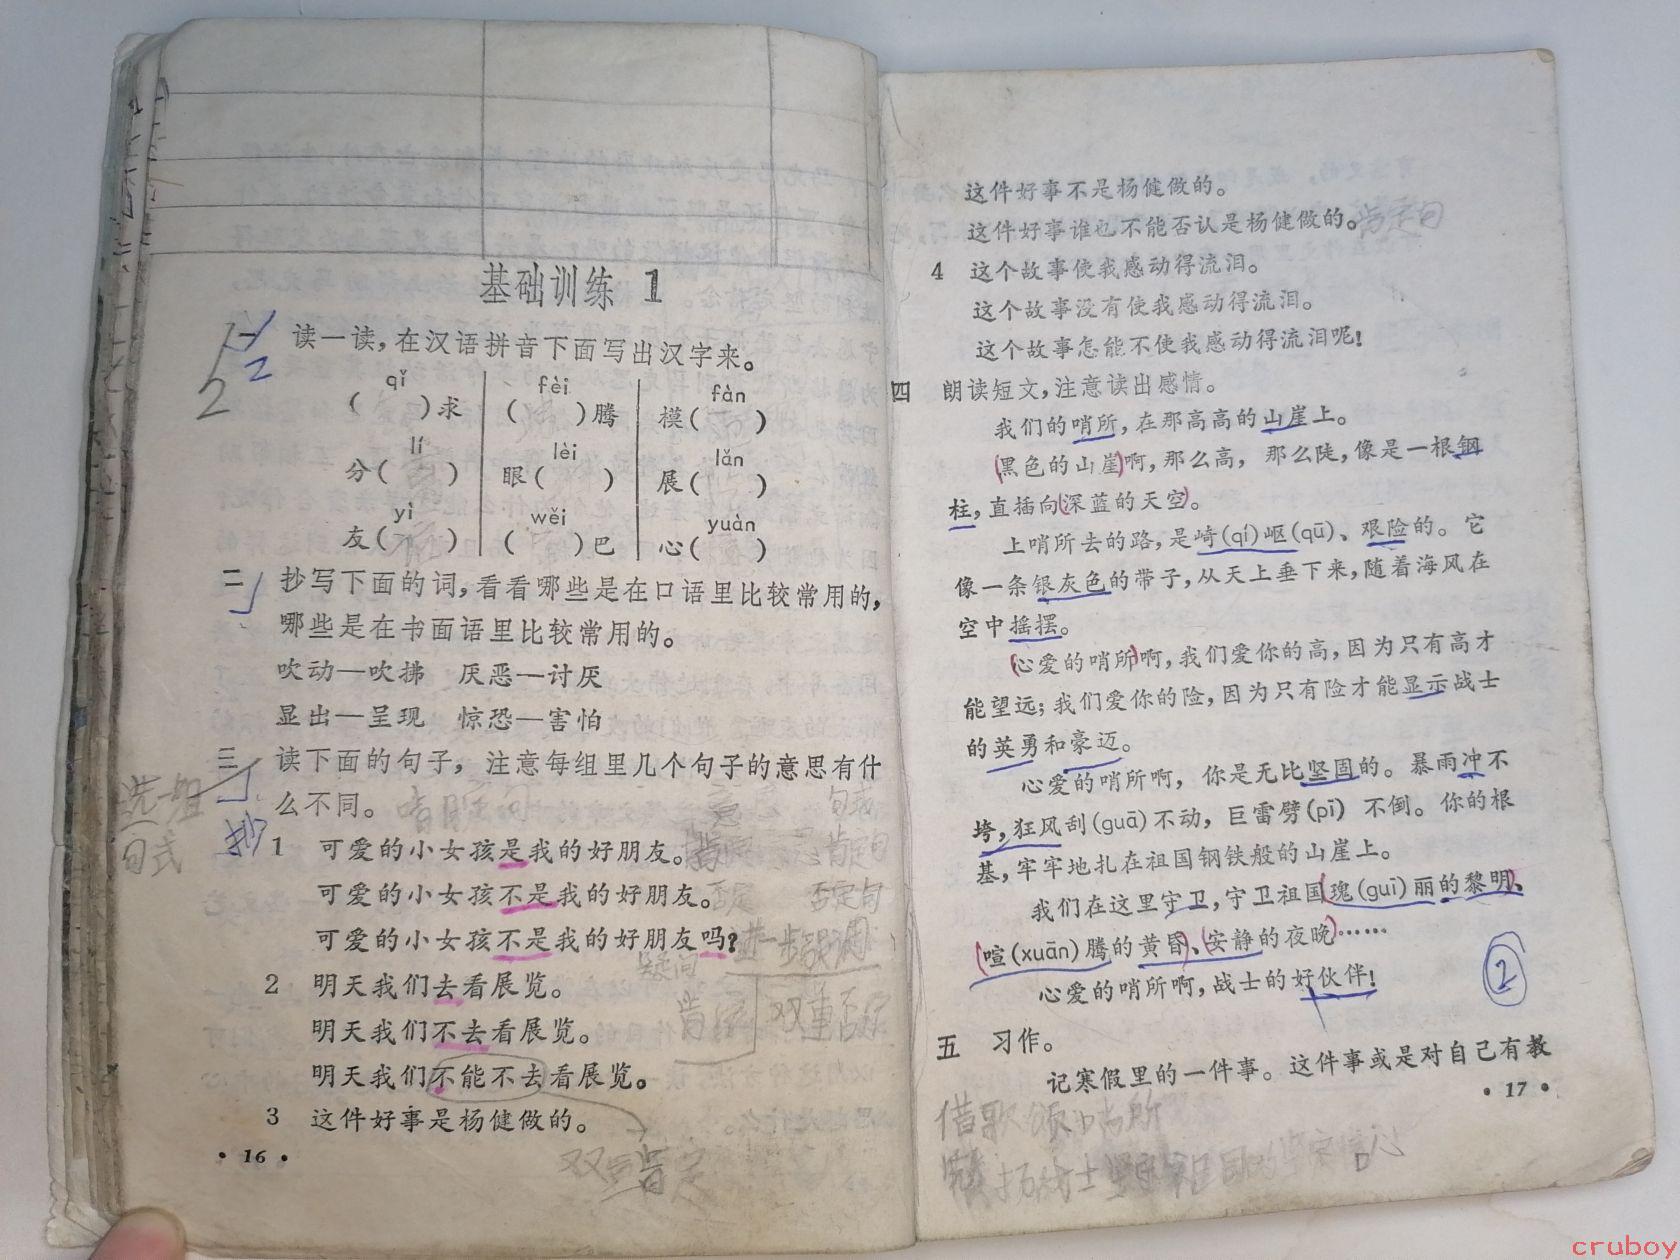 基础训练 1
一 读一读，在汉语拼音下面写出汉字来。
2
2
qǐ fèi fàn
( )求 ( )腾 模( )
lí lèi lǎn
分( ) 眼( ) 展( )
yì wěi yuàn
友( ) ( )巴 心( )
二 抄写下面的词，看看哪些是在口语里比较常用的，
哪些是在书面语里比较常用的。
吹动—吹拂 厌恶—讨厌
显出—呈现 惊恐—害怕
三 读下面的句子，注意每组里几个句子的意思有什
么不同。
选一组
句式
1 可爱的小女孩是我的好朋友。 肯定句
可爱的小女孩不是我的好朋友。 否定 否定句
可爱的小女孩不是我的好朋友吗？ 进一步强调
疑问
2 明天我们去看展览。
肯定 双重否定
明天我们不去看展览。
明天我们不能不去看展览。
3 这件好事是杨健做的。
双重肯定
• 16 •
这件好事不是杨健做的。
这件好事谁也不能否认是杨健做的。肯定句
4 这个故事使我感动得流泪。
这个故事没有使我感动得流泪。
这个故事怎能不使我感动得流泪呢！
四 朗读短文，注意读出感情。
我们的哨所，在那高高的山崖上。
黑色的山崖啊，那么高，那么陡，像是一根钢
柱，直插向深蓝的天空。
上哨所去的路，是崎(qí)岖(qū)、艰险的。它
像一条银灰色的带子，从天上垂下来，随着海风在
空中摇摆。
心爱的哨所啊，我们爱你的高，因为只有高才
能望远；我们爱你的险，因为只有险才能显示战士
的英勇和豪迈。
心爱的哨所啊，你是无比坚固的。暴雨冲不
垮，狂风刮(guā)不动，巨雷劈(pī)不倒。你的根
基，牢牢地扎在祖国钢铁般的山崖上。
我们在这里守卫，守卫祖国瑰(guī)丽的黎明、
喧(xuān)腾的黄昏、安静的夜晚……
②
心爱的哨所啊，战士的好伙伴！
五 习作。
记寒假里的一件事。这件事或是对自己有教
• 17 •
借歌颂哨所
cruboy